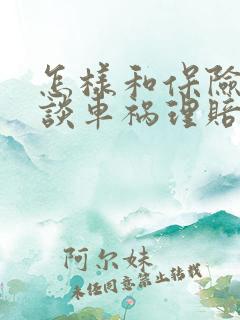 怎樣和保險
談車禍理賠
阿尔妹
未经同意禁止转载